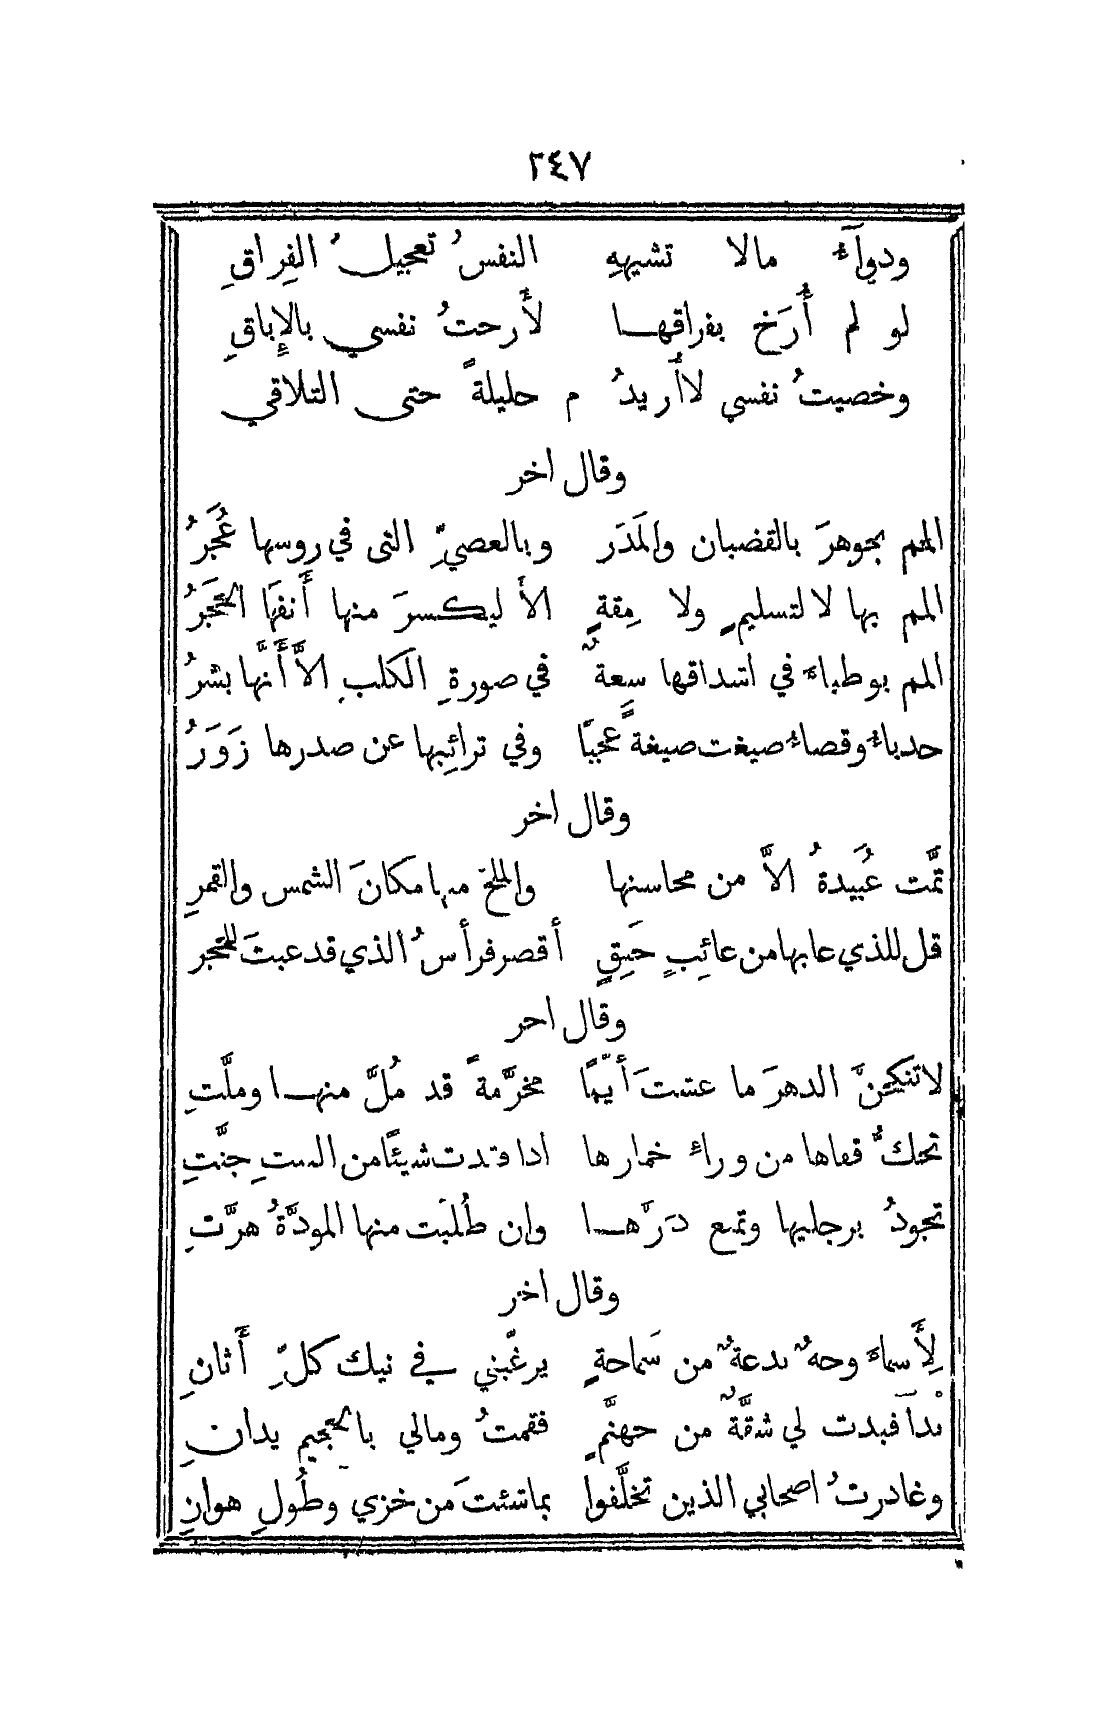 ٢٤٧
ودوآء مالا تشيهه النفسُ تعجيلُ الفِراقِ
لو لم أُرَخ بفراقهـا لأَرحتُ نفسي بالإِباقِ
وخصيتُ نفسي لاأُريدُ م حليلةً حتى التلاقي
وقال اخر
المم بجوهرَ بالقضبان والمَدَر وبالعصيِّ التى في روسها عُجَرُ
المم بها لا لتسليمٍ ولا مِقةٍ الأ ليكسرَ منها أَنفَها الحَجَرُ
المم بوطباء في اشداقها سِعةٌ في صورةِ الكلبِ الاَّ أَنَّها بشرُ
حدباءُ وقصاءُ صيغت صيغةً عجبًا وفي ترائِبها عن صدرها زَوَرُ
وقال اخر
تمَّت عُبَيدةُ الاَّ من محاسنها والملحُ منها مكانَ الشمس والقمرِ
قل للذي عابها من عائِبٍ حَنِقٍ أقصر فرأسُ الذي قد عبتَ للحجر
وقال احر
لا تنكحنَّ الدهرَ ما عشتَ أَيّمًا مخرَّمةً قد مُلَّ منهـا وملَّتِ
تحكُّ قفاها من وراءِ خمارها اذا فقدت شيئًا من البيتِ جنَّتِ
تجودُ برجليها وتمنع دَرَّهـا وان طُلبَت منها المودَّةُ هرَّتِ
وقال اخر
لِأَسماءَ وجهٌ بدعةٌ من سَماحةٍ يرغّبني في نيك كلِّ أَتانِ
بدآ فبدت لي شقَّةٌ من جهنَّمٍ فقمتُ ومالي بالجحيم يدانِ
وغادرتُ اصحابي الذين تخلَّفوا بماشئتَ من خزي وطُولِ هوانِ